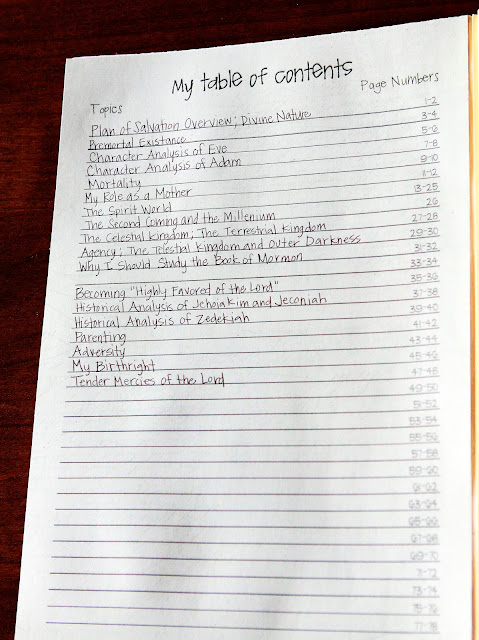 My table of contents
Topics Page Numbers
Plan of Salvation Overview; Divine Nature 1-2
Premortal Existance 3-4
Character Analysis of Eve 5-6
Character Analysis of Adam 7-8
Mortality 9-10
My Role as a Mother 11-12
The Spirit World 13-25
The Second Coming and the Millenium 26
The Celestial Kingdom; The Terrestrial Kingdom 27-28
Agency; The Telestial Kingdom and Outer Darkness 29-30
Why I Should Study the Book of Mormon 31-32
33-34
Becoming "Highly Favored of the Lord" 35-36
Historical Analysis of Jehoiakim and Jeconiah 37-38
Historical Analysis of Zedekiah 39-40
Parenting 41-42
Adversity 43-44
My Birthright 45-46
Tender Mercies of the Lord 47-48
49-50
51-52
53-54
55-56
57-58
59-60
61-62
63-64
65-66
67-68
69-70
71-72
73-74
75-76
77-78